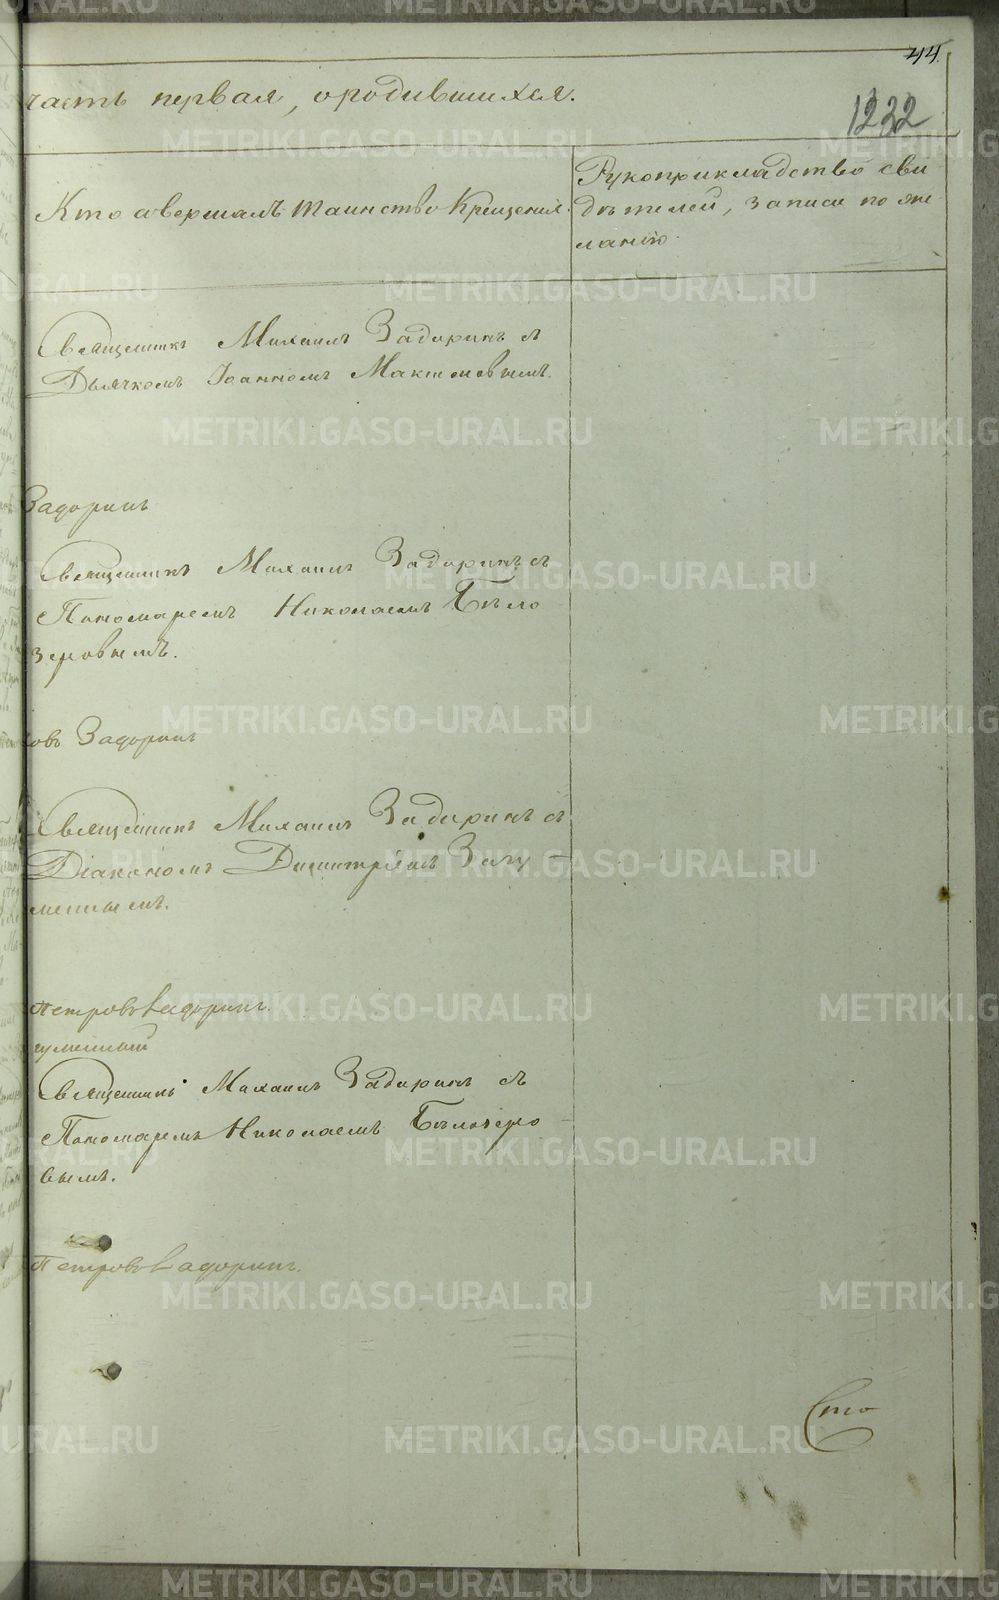 44
часть первая, ородившихся.
1232
Кто совершалъ таинство Крещенія.
Рукоприкладство сви
дѣтелей, записи по же
ланію.
Священникъ Михаилъ Задоринъ съ
Дьячкомъ Іоанномъ Максимовымъ.
Задоринъ
Священникъ Михаилъ Задоринъ съ
Пономаремъ Николаемъ Бѣло
зеровымъ.
овъ Задоринъ
Священникъ Михаилъ Задоринъ съ
Діакономъ Димитріемъ Загу
меннымъ.
Петровъ Задоринъ.
гуменный
Священникъ Михаилъ Задоринъ съ
Пономаремъ Николаемъ Бѣлозеро
вымъ.
Петровъ Задоринъ.
Сто
METRIKI.GASO-URAL.RU